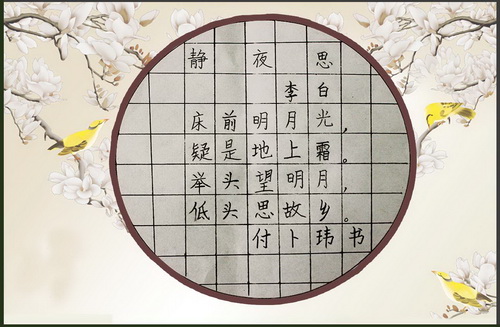 静夜思
李白
床前明月光，
疑是地上霜。
举头望明月，
低头思故乡。
付卜玮书